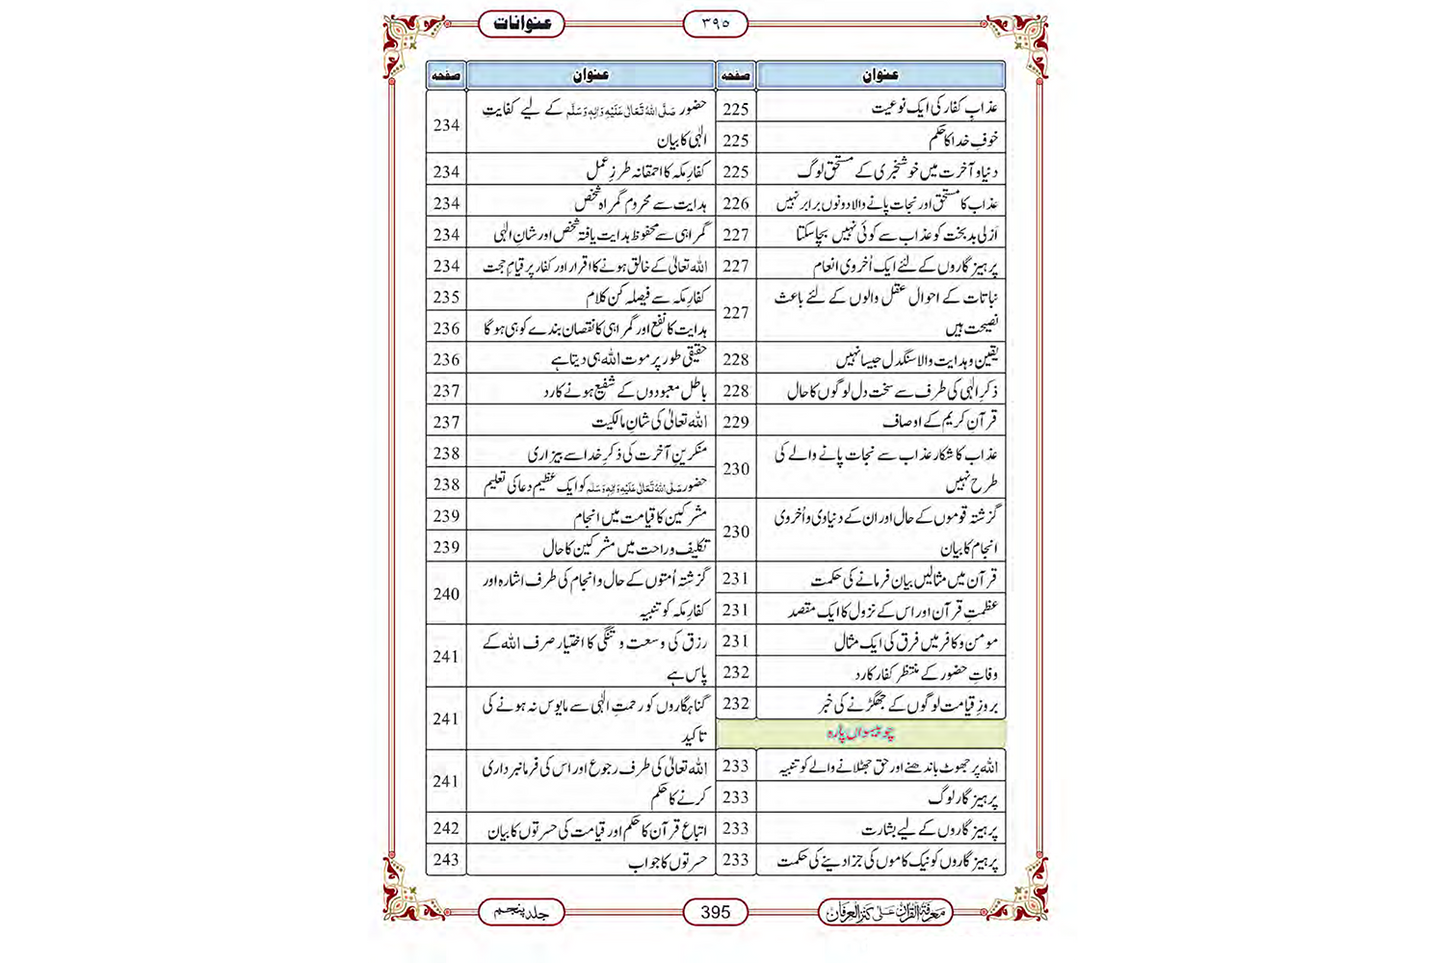 عنوانات
۳۹۵
عنوان صفحہ
عذابِ کفار کی ایک نوعیت 225
خوفِ خدا کا حکم 225
دنیا و آخرت میں خوشخبری کے مستحق لوگ 225
عذاب کا مستحق اور نجات پانے والا دونوں برابر نہیں 226
اَزلی بدبخت کو عذاب سے کوئی نہیں بچا سکتا 227
پرہیز گاروں کے لئے ایک اُخروی انعام 227
نباتات کے احوال عقل والوں کے لئے باعث
نصیحت ہیں 227
یقین و ہدایت والا سنگدل جیسا نہیں 228
ذکرِ الٰہی کی طرف سے سخت دل لوگوں کا حال 228
قرآنِ کریم کے اوصاف 229
عذاب کا شکار عذاب سے نجات پانے والے کی
طرح نہیں 230
گزشتہ قوموں کے حال اور ان کے دنیاوی و اُخروی
انجام کا بیان 230
قرآن میں مثالیں بیان فرمانے کی حکمت 231
عظمتِ قرآن اور اس کے نزول کا ایک مقصد 231
مومن و کافر میں فرق کی ایک مثال 231
وفاتِ حضور کے منتظر کفار کا رد 232
بروزِ قیامت لوگوں کے جھگڑنے کی خبر 232
چوبیسواں پارہ
اللہ پر جھوٹ باندھنے اور حق جھٹلانے والے کو تنبیہ 233
پرہیز گار لوگ 233
پرہیز گاروں کے لیے بشارت 233
پرہیز گاروں کو نیک کاموں کی جزا دینے کی حکمت 233
عنوان صفحہ
حضور صَلَّی اللہُ تَعَالٰی عَلَیْہِ وَاٰلِہٖ وَسَلَّم کے لیے کفایتِ
الٰہی کا بیان 234
کفارِ مکہ کا احمقانہ طرزِ عمل 234
ہدایت سے محروم گمراہ شخص 234
گمراہی سے محفوظ ہدایت یافتہ شخص اور شانِ الٰہی 234
اللہ تعالیٰ کے خالق ہونے کا اقرار اور کفار پر قیامِ حجت 234
کفارِ مکہ سے فیصلہ کن کلام 235
ہدایت کا نفع اور گمراہی کا نقصان بندے کو ہی ہو گا 236
حقیقی طور پر موت اللہ ہی دیتا ہے 236
باطل معبودوں کے شفیع ہونے کا رد 237
اللہ تعالیٰ کی شانِ مالکیت 237
منکرینِ آخرت کی ذکرِ خدا سے بیزاری 238
حضور صَلَّی اللہُ تَعَالٰی عَلَیْہِ وَاٰلِہٖ وَسَلَّم کو ایک عظیم دعا کی تعلیم 238
مشرکین کا قیامت میں انجام 239
تکلیف و راحت میں مشرکین کا حال 239
گزشتہ اُمتوں کے حال و انجام کی طرف اشارہ اور
کفارِ مکہ کو تنبیہ 240
رزق کی وسعت و تنگی کا اختیار صرف اللہ کے
پاس ہے 241
گناہگاروں کو رحمتِ الٰہی سے مایوس نہ ہونے کی
تاکید 241
اللہ تعالیٰ کی طرف رجوع اور اس کی فرمانبرداری
کرنے کا حکم 241
اتباعِ قرآن کا حکم اور قیامت کی حسرتوں کا بیان 242
حسرتوں کا جواب 243
مَعرِفۃُ القُرآن عَلٰی کَنزُ العِرفَان
395
جلد پنجم